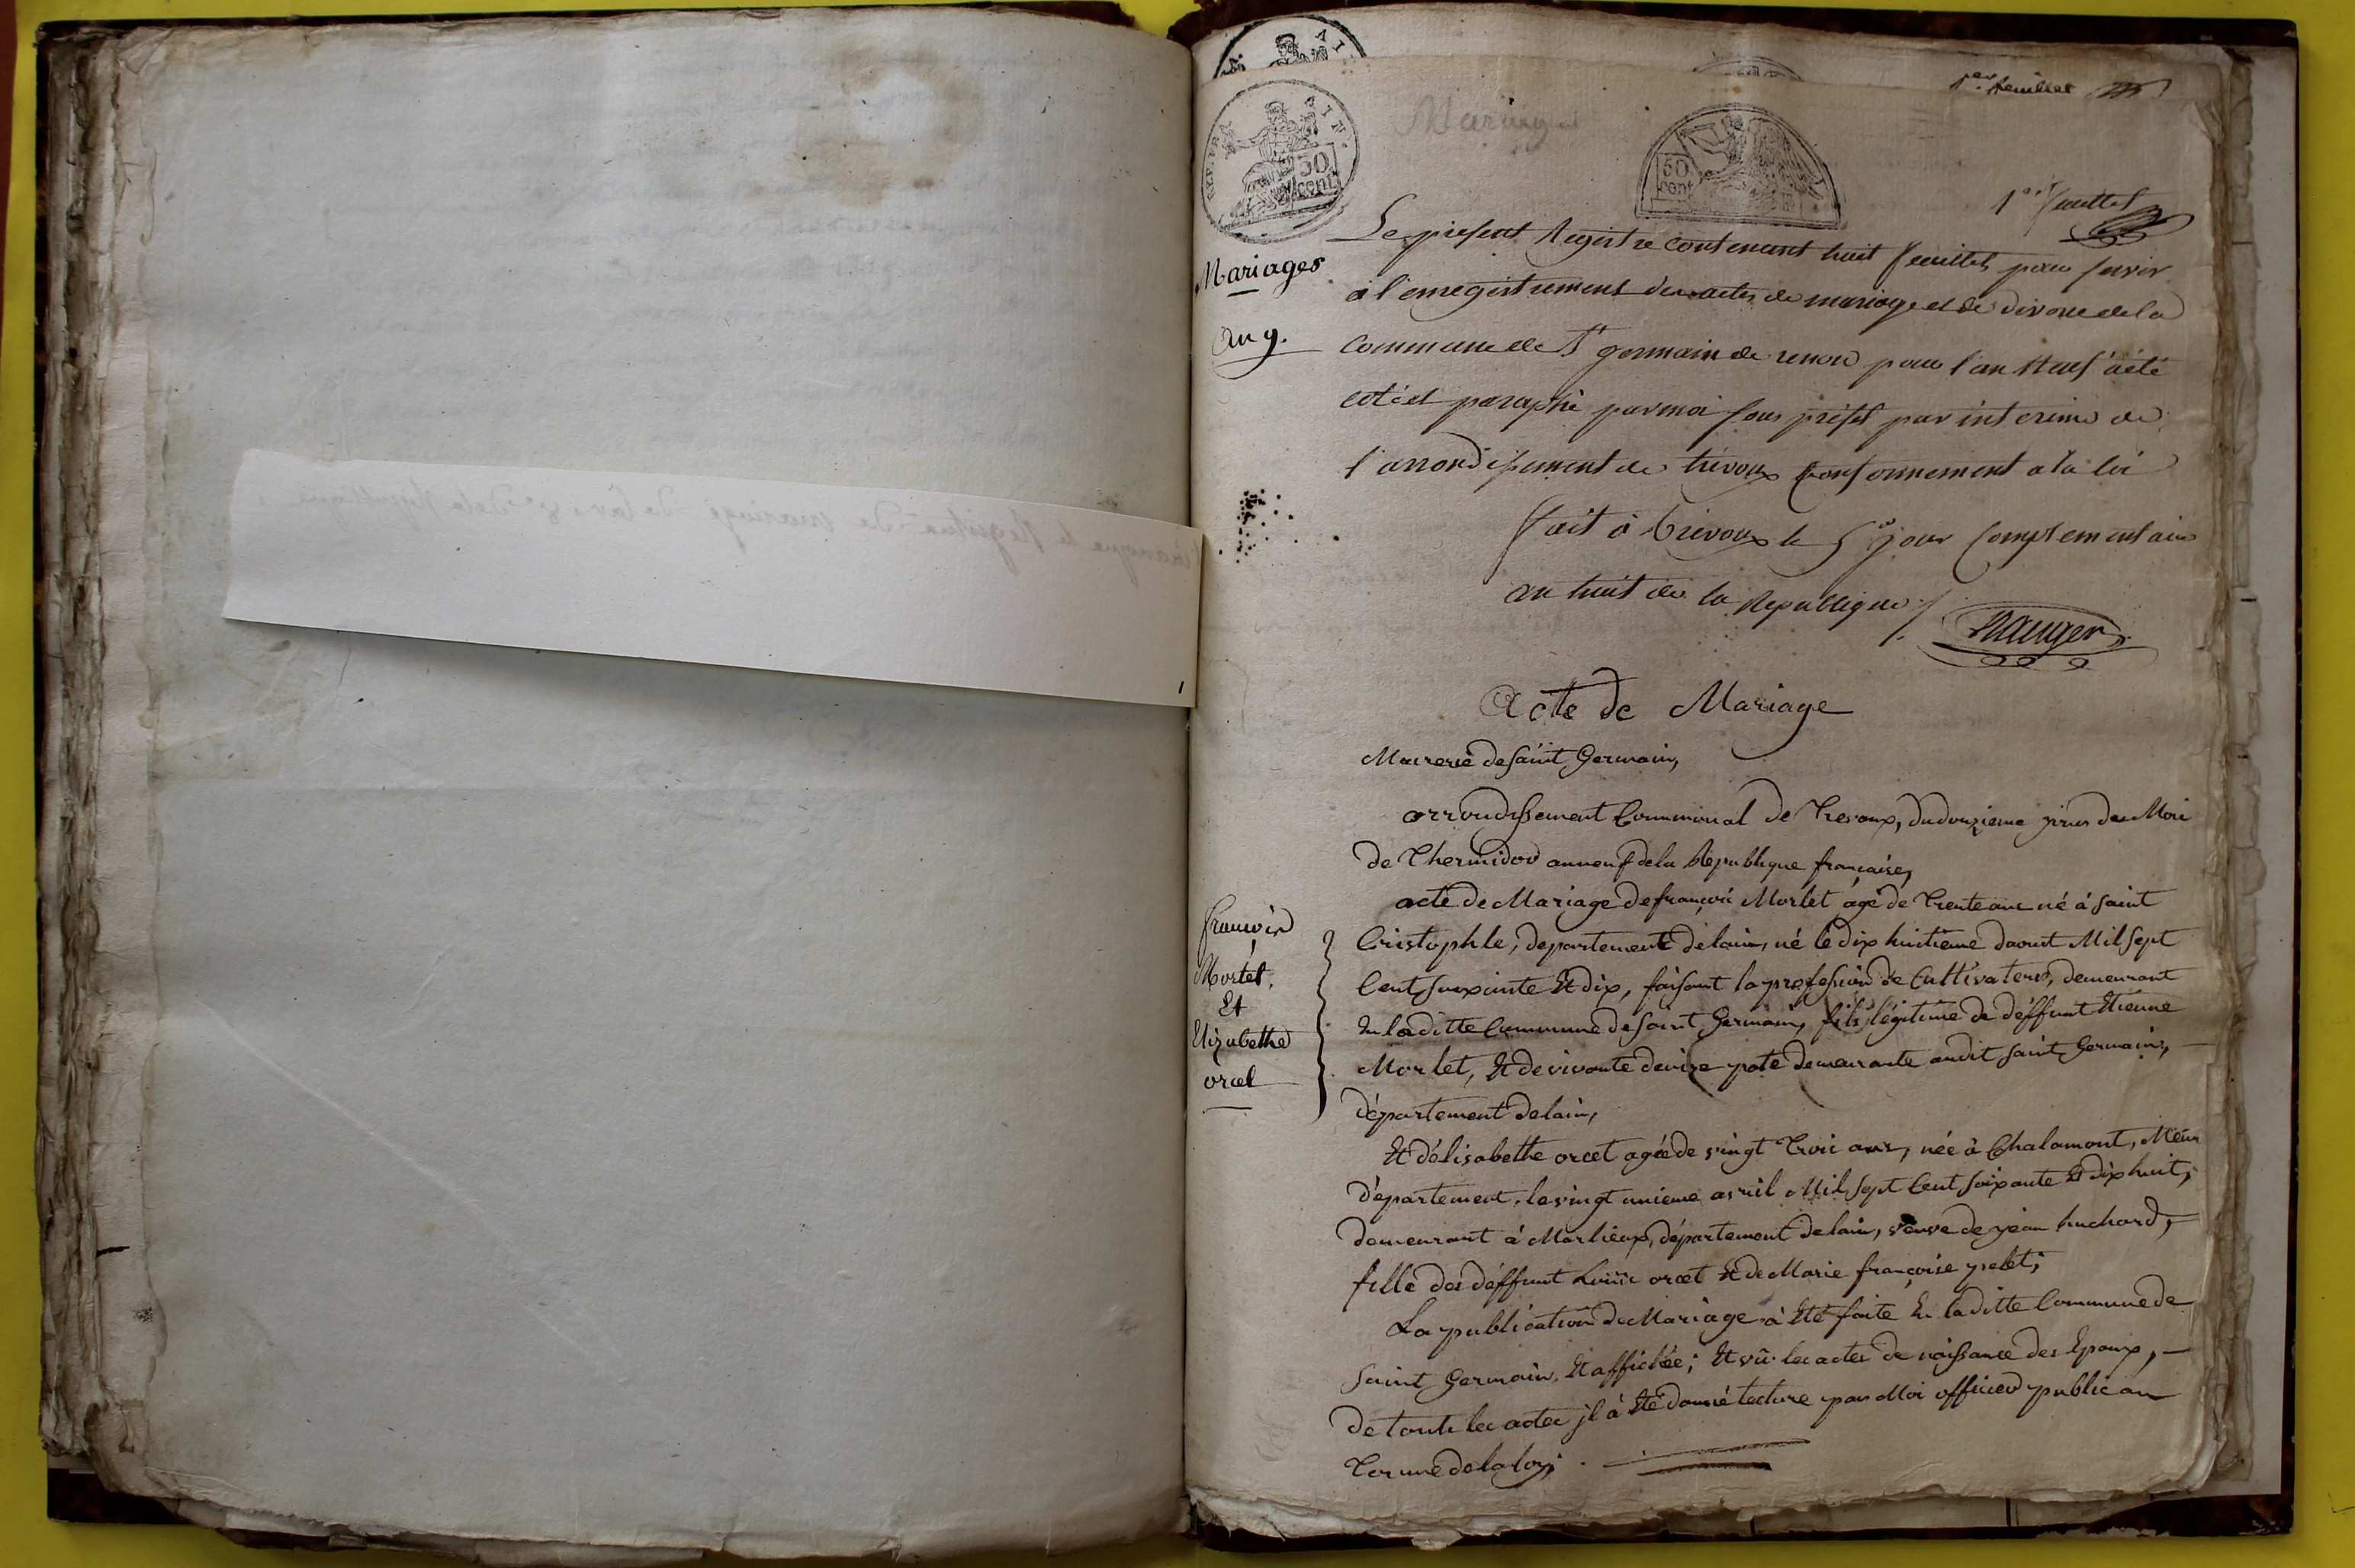 1er feuillet
Mariage
REP. FRA
AIN.
50
cent
50
cent
1er feuillet
Le present Registre contenant huit feuillets pour servir
Mariages
à l'enregistrement des actes de mariage et de divorce de la
an 9.
Commune de St germain de renon pour l'an Neuf a été
coté et paraphé par moi sous préfet par interim de
l'arrondissement de trévoux conformement a la loi
fait à trévoux le 5e jour Complementaire
an huit de la Republique
Acte de Mariage
Mairerie de saint Germain,
arrondissement Communal de Trevoux, du douzieme jour du Moi
de Thermidor an neuf de la République française,
acte de Mariage de françois Morlet agé de Trente ans né à saint
Cristophle, departement de lain, né le dix huitieme daout Mil sept
Cent soixante Et dix, faisant la profession de Cultivateur, demeurant
En laditte Commune de saint Germain, fils légitime de déffunt Etienne
Morlet, Et de vivante denize pote demeurante audit saint Germain,
département de lain,
françois
Morlet,
Et
Elizabethe
orcet
Et délisabethe orcet agée de vingt Trois ans, née à Chalamont, Mém
département, le vingt unieme avril Mil sept Cent soixante Et dix huit,
demeurant à Marlieux, département de lain, veuve de jean huchard,
fille des déffunt Louis orcet Et de Marie françoise pelet;
La publication du Mariage à Eté faite En laditte Commune de
saint Germain, Et affichée; Et vû les actes de naissance des Epoux,
de touts les actes jl à Eté donné lecture par Moi officier public au
Terme de la loy;
1